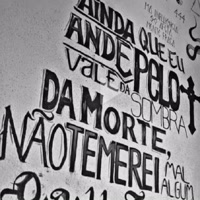 AINDA QUE EU
ANDE PELO
VALE DA SOMBRA
DA MORTE,
NÃO TEMEREI MAL
ALGUM